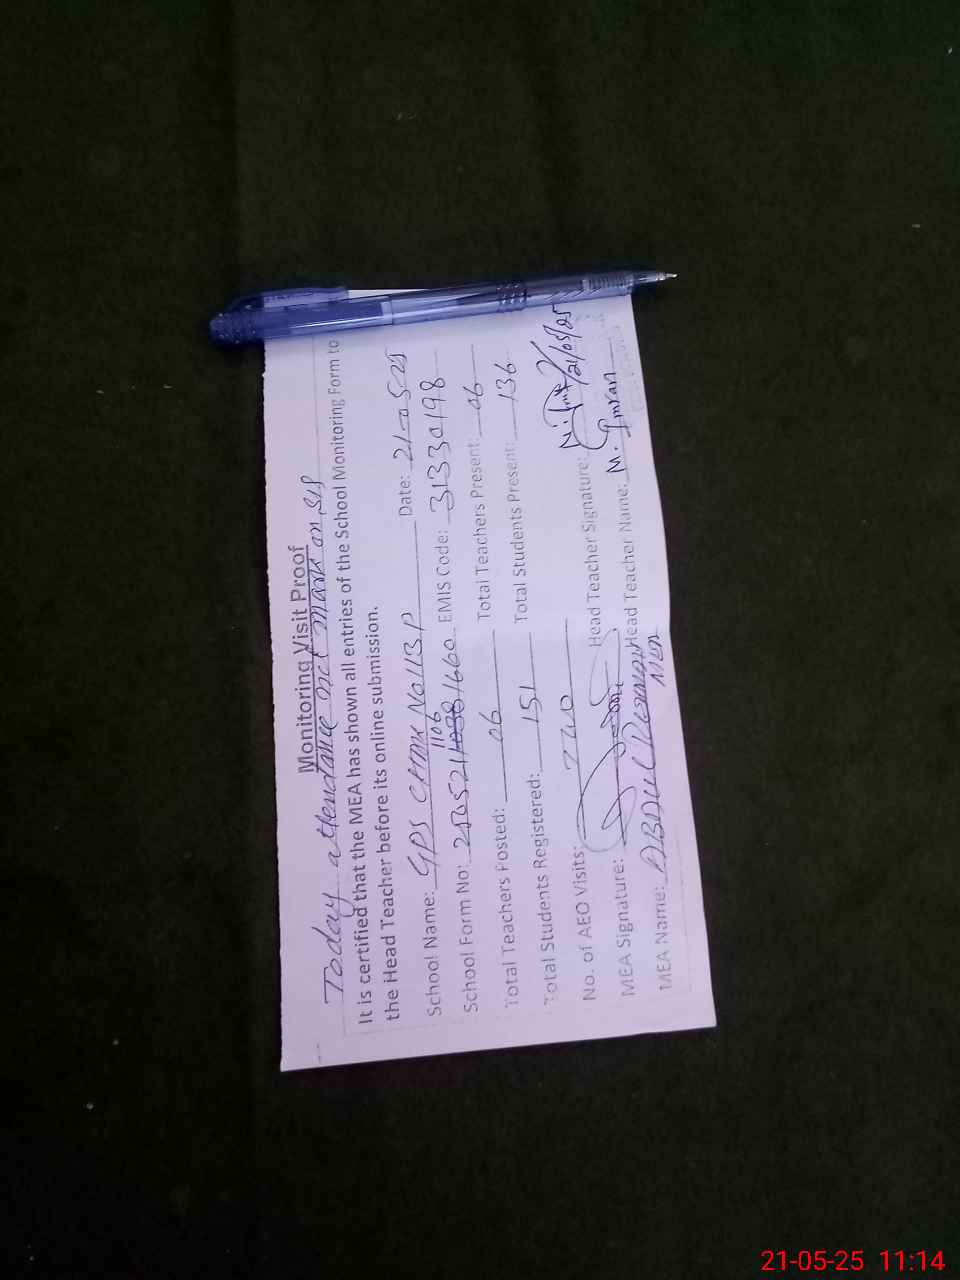 Monitoring Visit Proof
Today attendance not mark on SIS
It is certified that the MEA has shown all entries of the School Monitoring Form to
the Head Teacher before its online submission.
School Name: GPS CHAK No 113 P Date: 21-05-25
1106
School Form No: 1660 EMIS Code: 31330198
Total Teachers Posted: 06 Total Teachers Present: 06
Total Students Registered: 151 Total Students Present: 136
No. of AEO Visits: TWO
MEA Signature: Head Teacher Signature: 21/05/25
MEA Name: ABDUL Head Teacher Name: M. Imran
MEA
21-05-25 11:14